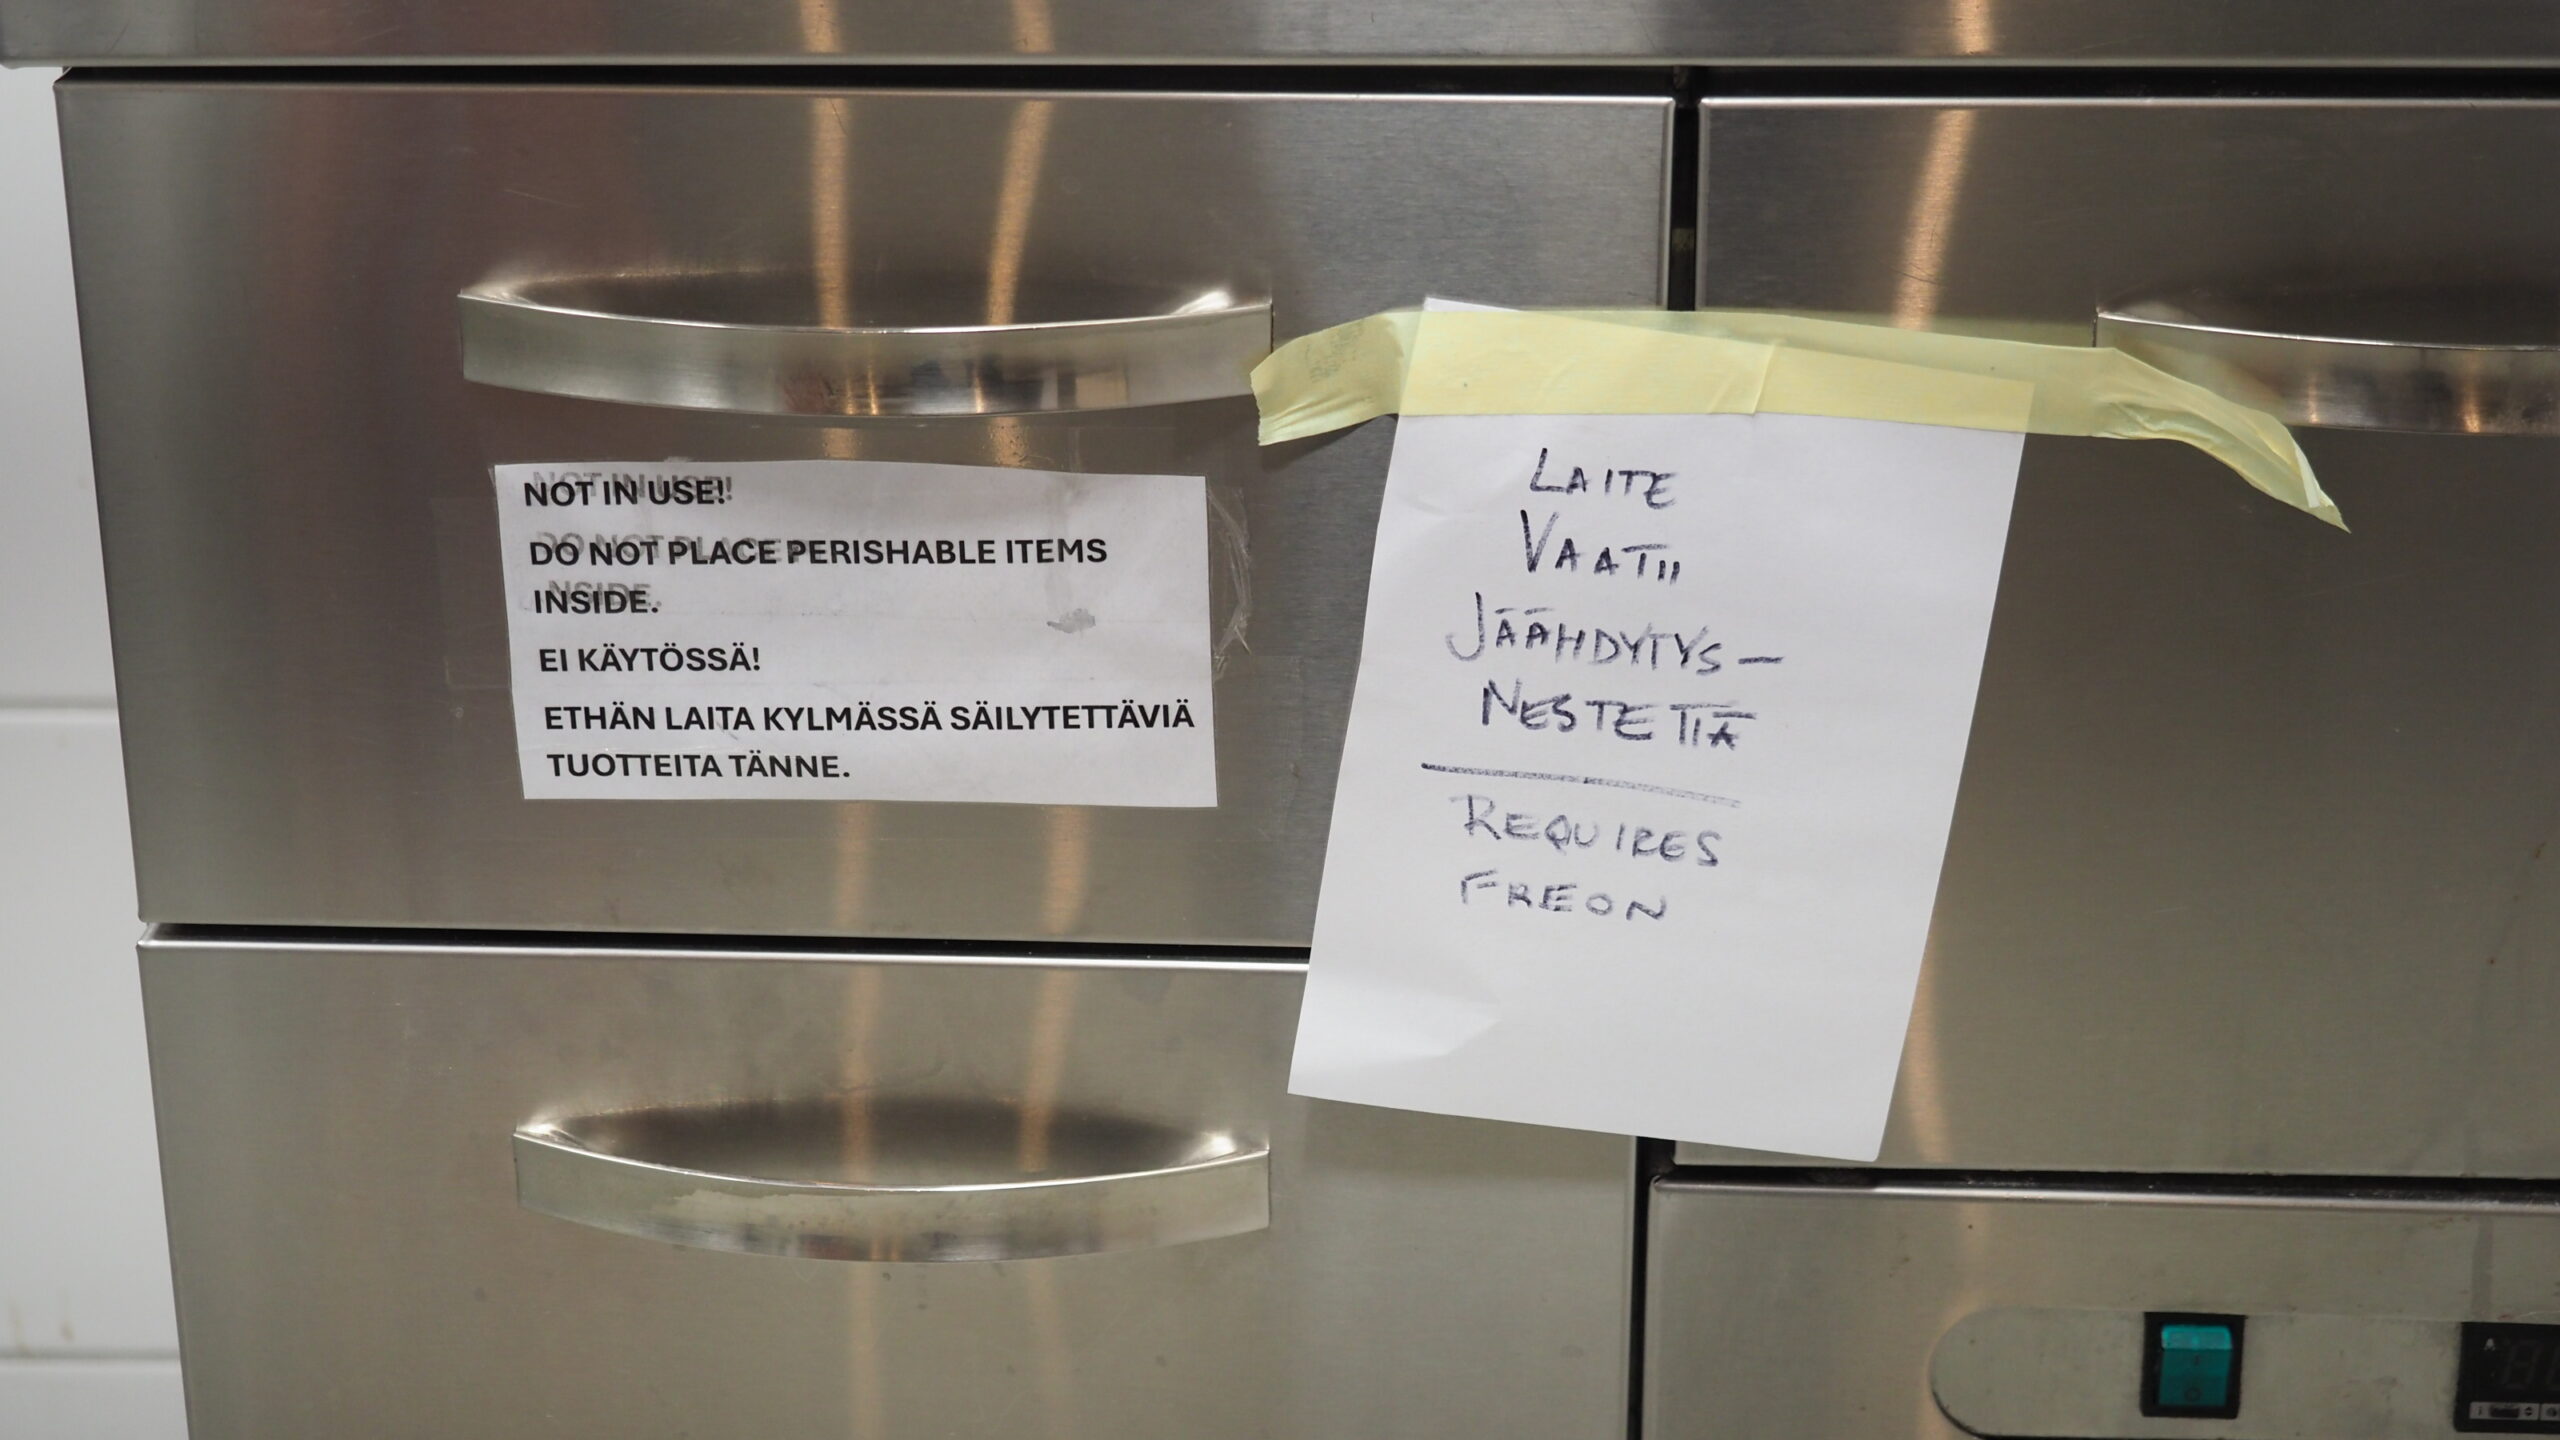 NOT IN USE!
DO NOT PLACE PERISHABLE ITEMS
INSIDE.
EI KÄYTÖSSÄ!
ETHÄN LAITA KYLMÄSSÄ SÄILYTETTÄVIÄ
TUOTTEITA TÄNNE.
LAITE
VAATII
JÄÄHDYTYS-
NESTETTÄ
REQUIRES
FREON